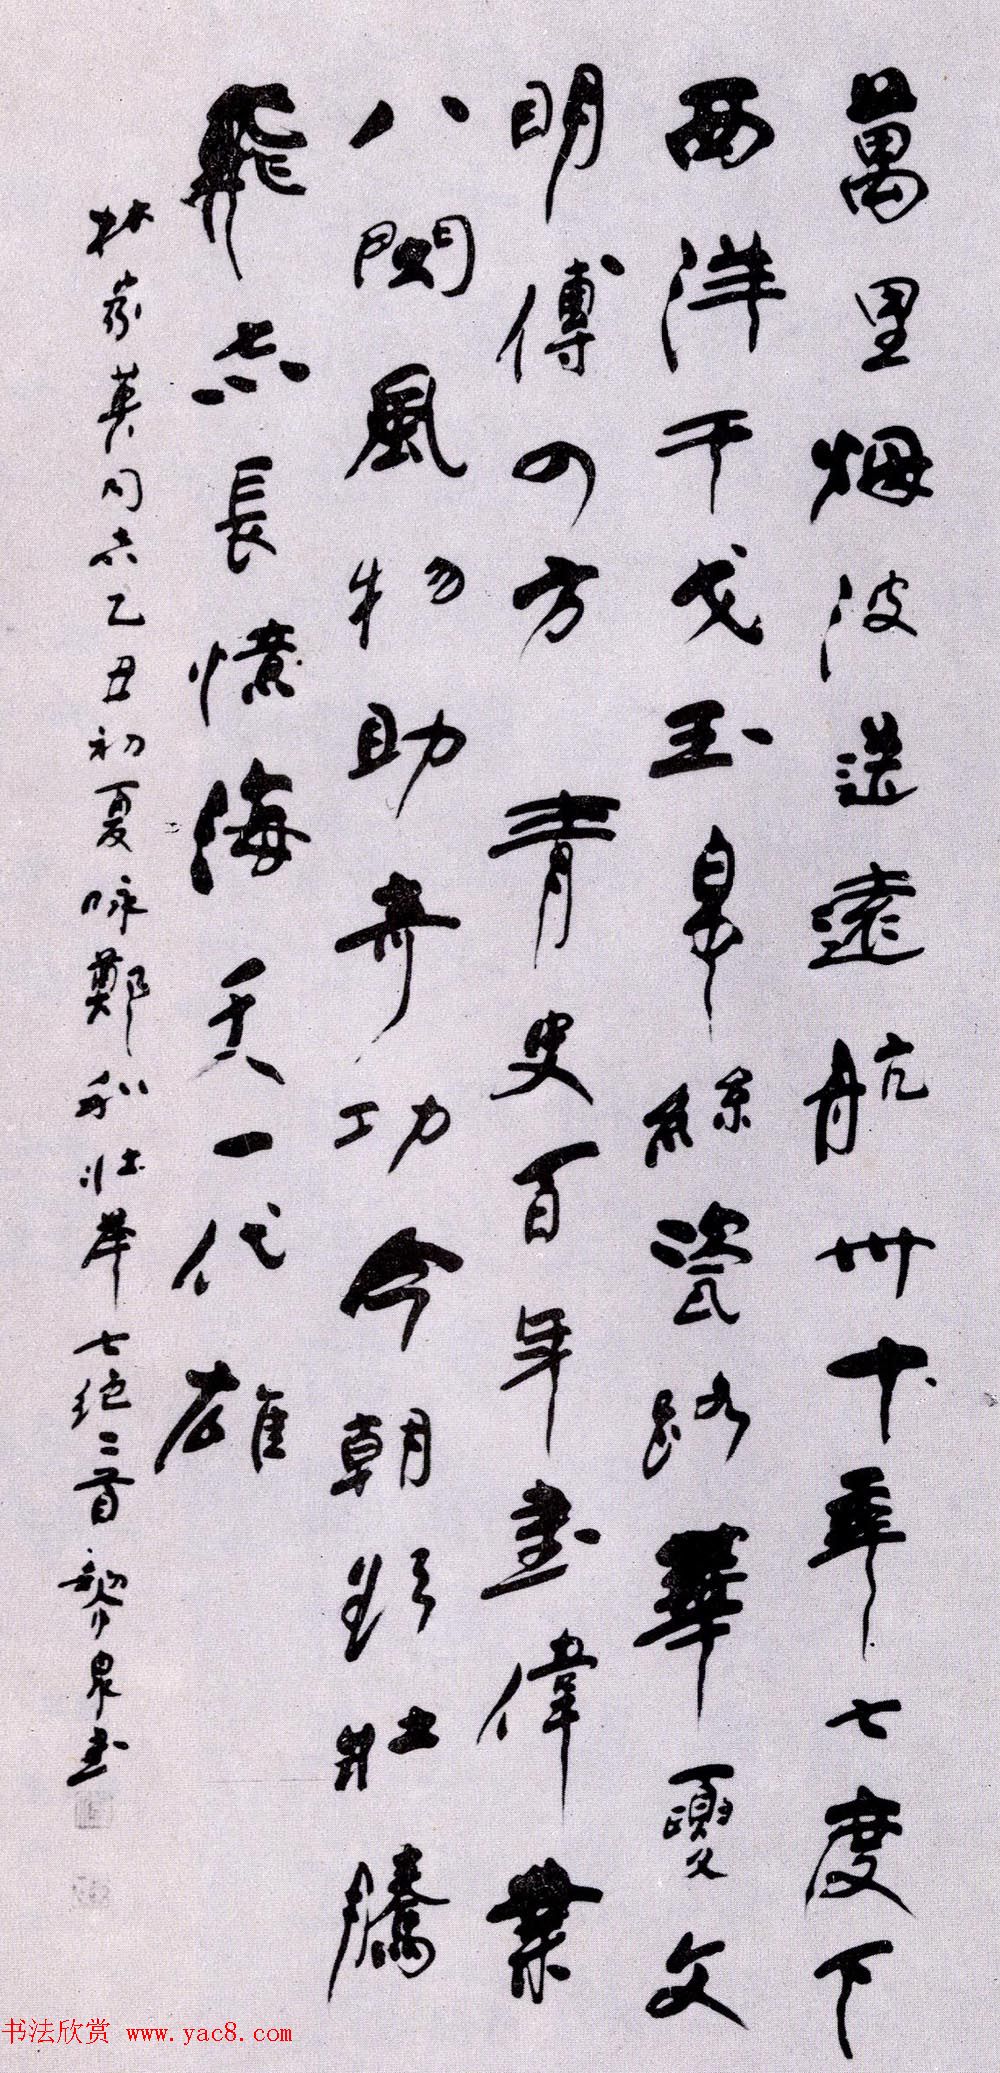 萬里烟波遠航卅年七度下
西洋干戈玉帛絲瓷路華夏文
明傳四方青史百年畫偉業
八閩風物助奇功今朝強壯騰
飛志長憶海天一代雄
林英同志乙丑初夏咏鄭和壯舉七絕二首黎泉书
书法欣赏 www.yac8.com